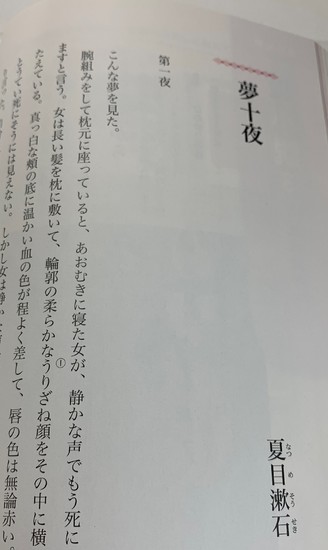 夢十夜
夏目漱石
なつめそうせき
第一夜
こんな夢を見た。
腕組みをして枕元に座っていると、あおむきに寝た女が、静かな声でもう死に
ますと言う。女は長い髪を枕に敷いて、輪郭の柔らかなうりざね顔をその中に横
①
たえている。真っ白な頰の底に温かい血の色が程よく差して、唇の色は無論赤い。
とうてい死にそうには見えない。しかし女は静かな